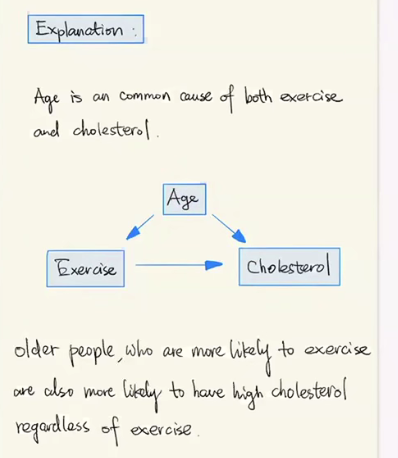 Explanation :
Age is an common cause of both exercise
and cholesterol.
Age
Exercise
Cholesterol
older people, who are more likely to exercise
are also more likely to have high cholesterol
regardless of exercise.